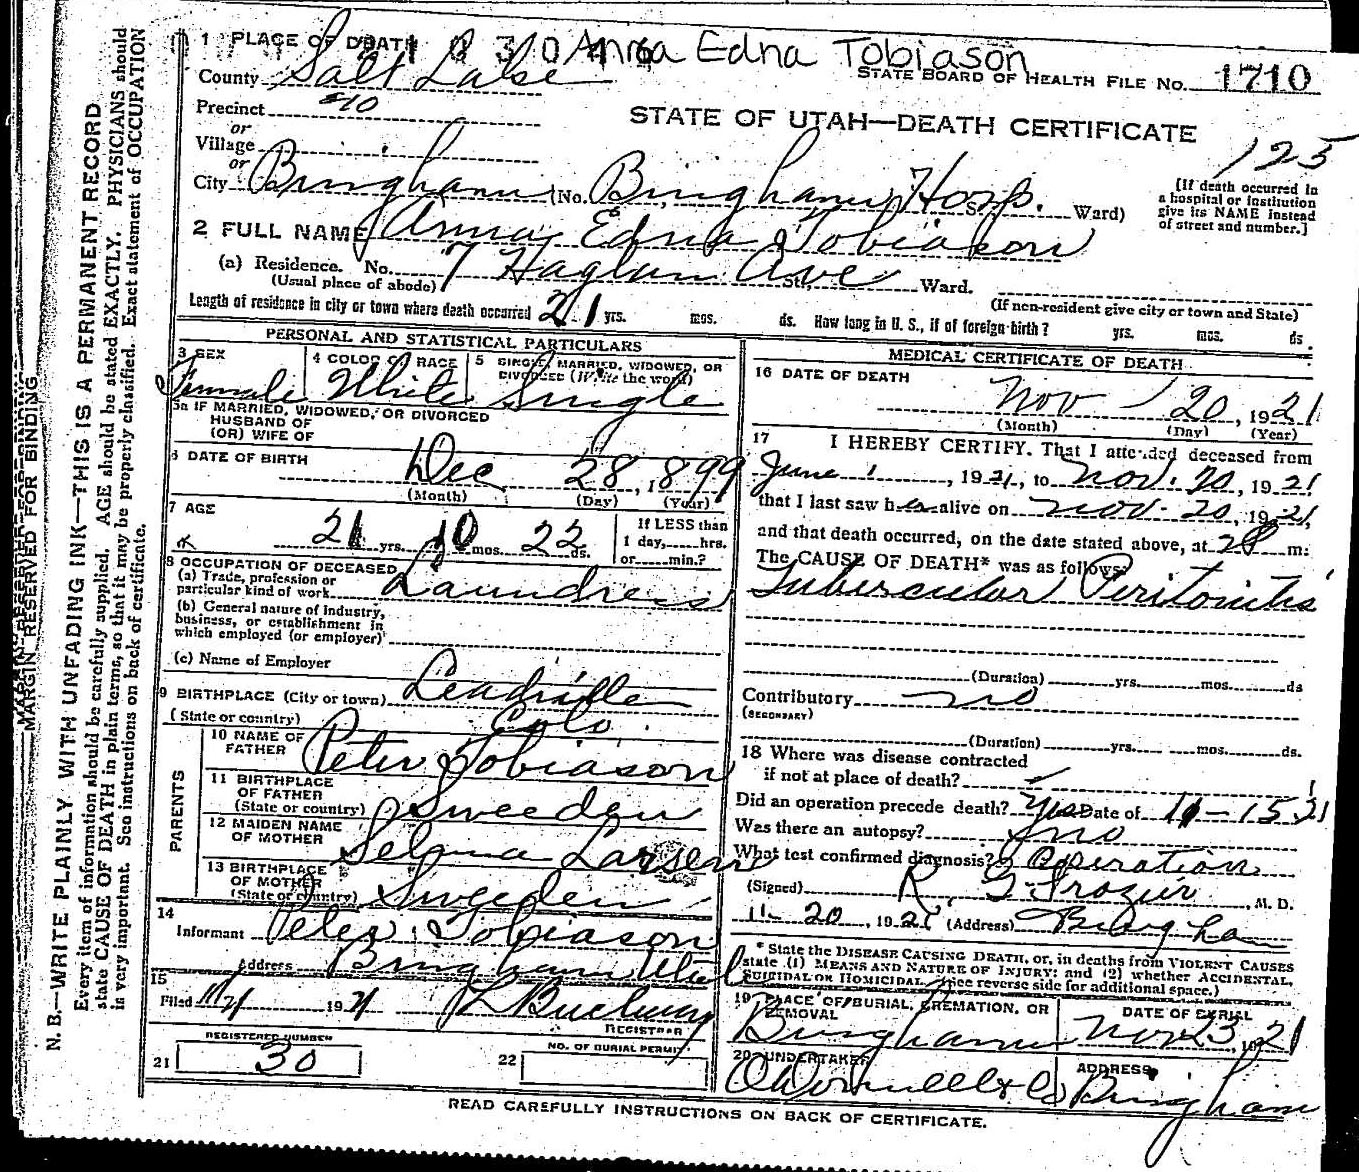 Anna Edna Tobiason
1 PLACE OF DEATH
STATE BOARD OF HEALTH FILE No. 1710
County Salt Lake
Precinct
or
Village
or
City Bingham (No. Bingham Hosp. St. Ward)
STATE OF UTAH—DEATH CERTIFICATE
125
[If death occurred in
a hospital or institution
give its NAME instead
of street and number.]
2 FULL NAME Anna Edna Tobiason
(a) Residence. No. 7 Ave St. Ward.
(Usual place of abode)
(If non-resident give city or town and State)
Length of residence in city or town where death occurred 21 yrs. mos. ds. How long in U. S., if of foreign birth? yrs. mos. ds.
PERSONAL AND STATISTICAL PARTICULARS
3 SEX
Female
4 COLOR OR RACE
White
5 SINGLE, MARRIED, WIDOWED, OR
DIVORCED (Write the word)
Single
5a IF MARRIED, WIDOWED, OR DIVORCED
HUSBAND OF
(OR) WIFE OF
6 DATE OF BIRTH Dec 28, 1899
(Month) (Day) (Year)
7 AGE
21 yrs. 10 mos. 22 ds.
If LESS than
1 day, hrs.
or min.?
8 OCCUPATION OF DECEASED
(a) Trade, profession or
particular kind of work Laundress
(b) General nature of industry,
business, or establishment in
which employed (or employer)
(c) Name of Employer
9 BIRTHPLACE (City or town) Leadville
(State or country) Colo.
PARENTS
10 NAME OF
FATHER Peter Tobiason
11 BIRTHPLACE
OF FATHER
(State or country) Sweeden
12 MAIDEN NAME
OF MOTHER Selma Larsen
13 BIRTHPLACE
OF MOTHER
(State or country) Sweden
14
Informant Peter Tobiason
Address Bingham Utah
15
Filed 1921
REGISTRAR
REGISTERED NUMBER
21 30
22 NO. OF BURIAL PERMIT
MEDICAL CERTIFICATE OF DEATH
16 DATE OF DEATH
Nov 20, 1921
(Month) (Day) (Year)
17 I HEREBY CERTIFY, That I attended deceased from
June 1, 1921, to Nov. 20, 1921
that I last saw her alive on Nov. 20, 1921,
and that death occurred, on the date stated above, at m.
The CAUSE OF DEATH* was as follows:
Tubercular Peritonitis
(Duration) yrs. mos. ds
Contributory no
(SECONDARY)
(Duration) yrs. mos. ds.
18 Where was disease contracted
if not at place of death?
Did an operation precede death? Yes Date of 11-15-21
Was there an autopsy? no
What test confirmed diagnosis? Operation
(Signed) R. G. Frazier, M. D.
11-20, 1921 (Address) Bingham
* State the DISEASE CAUSING DEATH, or, in deaths from VIOLENT CAUSES
state (1) MEANS AND NATURE OF INJURY; and (2) whether ACCIDENTAL,
SUICIDAL or HOMICIDAL. (See reverse side for additional space.)
19 PLACE OF BURIAL, CREMATION, OR
REMOVAL
Bingham
DATE OF BURIAL
Nov 23, 1921
20 UNDERTAKER
O'Donnell & Co
ADDRESS
Bingham
READ CAREFULLY INSTRUCTIONS ON BACK OF CERTIFICATE.
MARGIN RESERVED FOR BINDING
N. B.—WRITE PLAINLY WITH UNFADING INK—THIS IS A PERMANENT RECORD
Every item of information should be carefully supplied. AGE should be stated EXACTLY. PHYSICIANS should
state CAUSE OF DEATH in plain terms, so that it may be properly classified. Exact statement of OCCUPATION
is very important. See instructions on back of certificate.